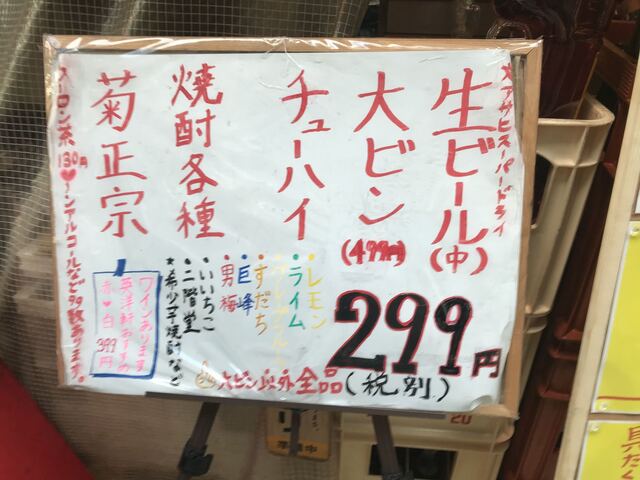 アサヒスーパードライ
生ビール(中)
大ビン(499円)
チューハイ
・レモン
・ライム
・すだち
・巨峰
・男梅
焼酎各種
・いいちこ
・二階堂
★希少芋焼酎など
菊正宗
ワインあります
赤♥白 399円
ウーロン茶 130円♥ノンアルコールなど多数あります。
299円
大ビン以外全品(税別)
20
準備中